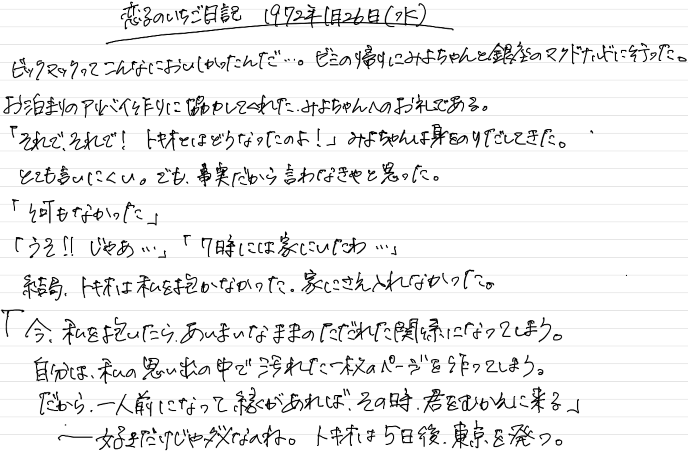 恋子のいちご日記 1972年1月26日(水)
ビックマックってこんなにおいしかったんだ…。ゼミの帰りにみよちゃんと銀座のマクドナルドに行った。
お泊まりのアリバイ作りに協力してくれた、みよちゃんへのお礼である。
「それで、それで! トキオとはどうなったのよ!」みよちゃんは身をのりだしてきた。
とても言いにくい。でも、事実だから言わなきゃと思った。
「何もなかった」
「うそ!! じゃあ…」「7時には家にいたわ…」
結局、トキオは私を抱かなかった。家にさえ入れなかった。
「今、私を抱いたら、あいまいなままのただれた関係になってしまう。
自分は、私の思い出の中で汚れた一枚のページを作ってしまう。
だから、一人前になって縁があれば、その時、君をむかえに来る」
―好きだけじゃダメなのね。トキオは5日後、東京を発つ。